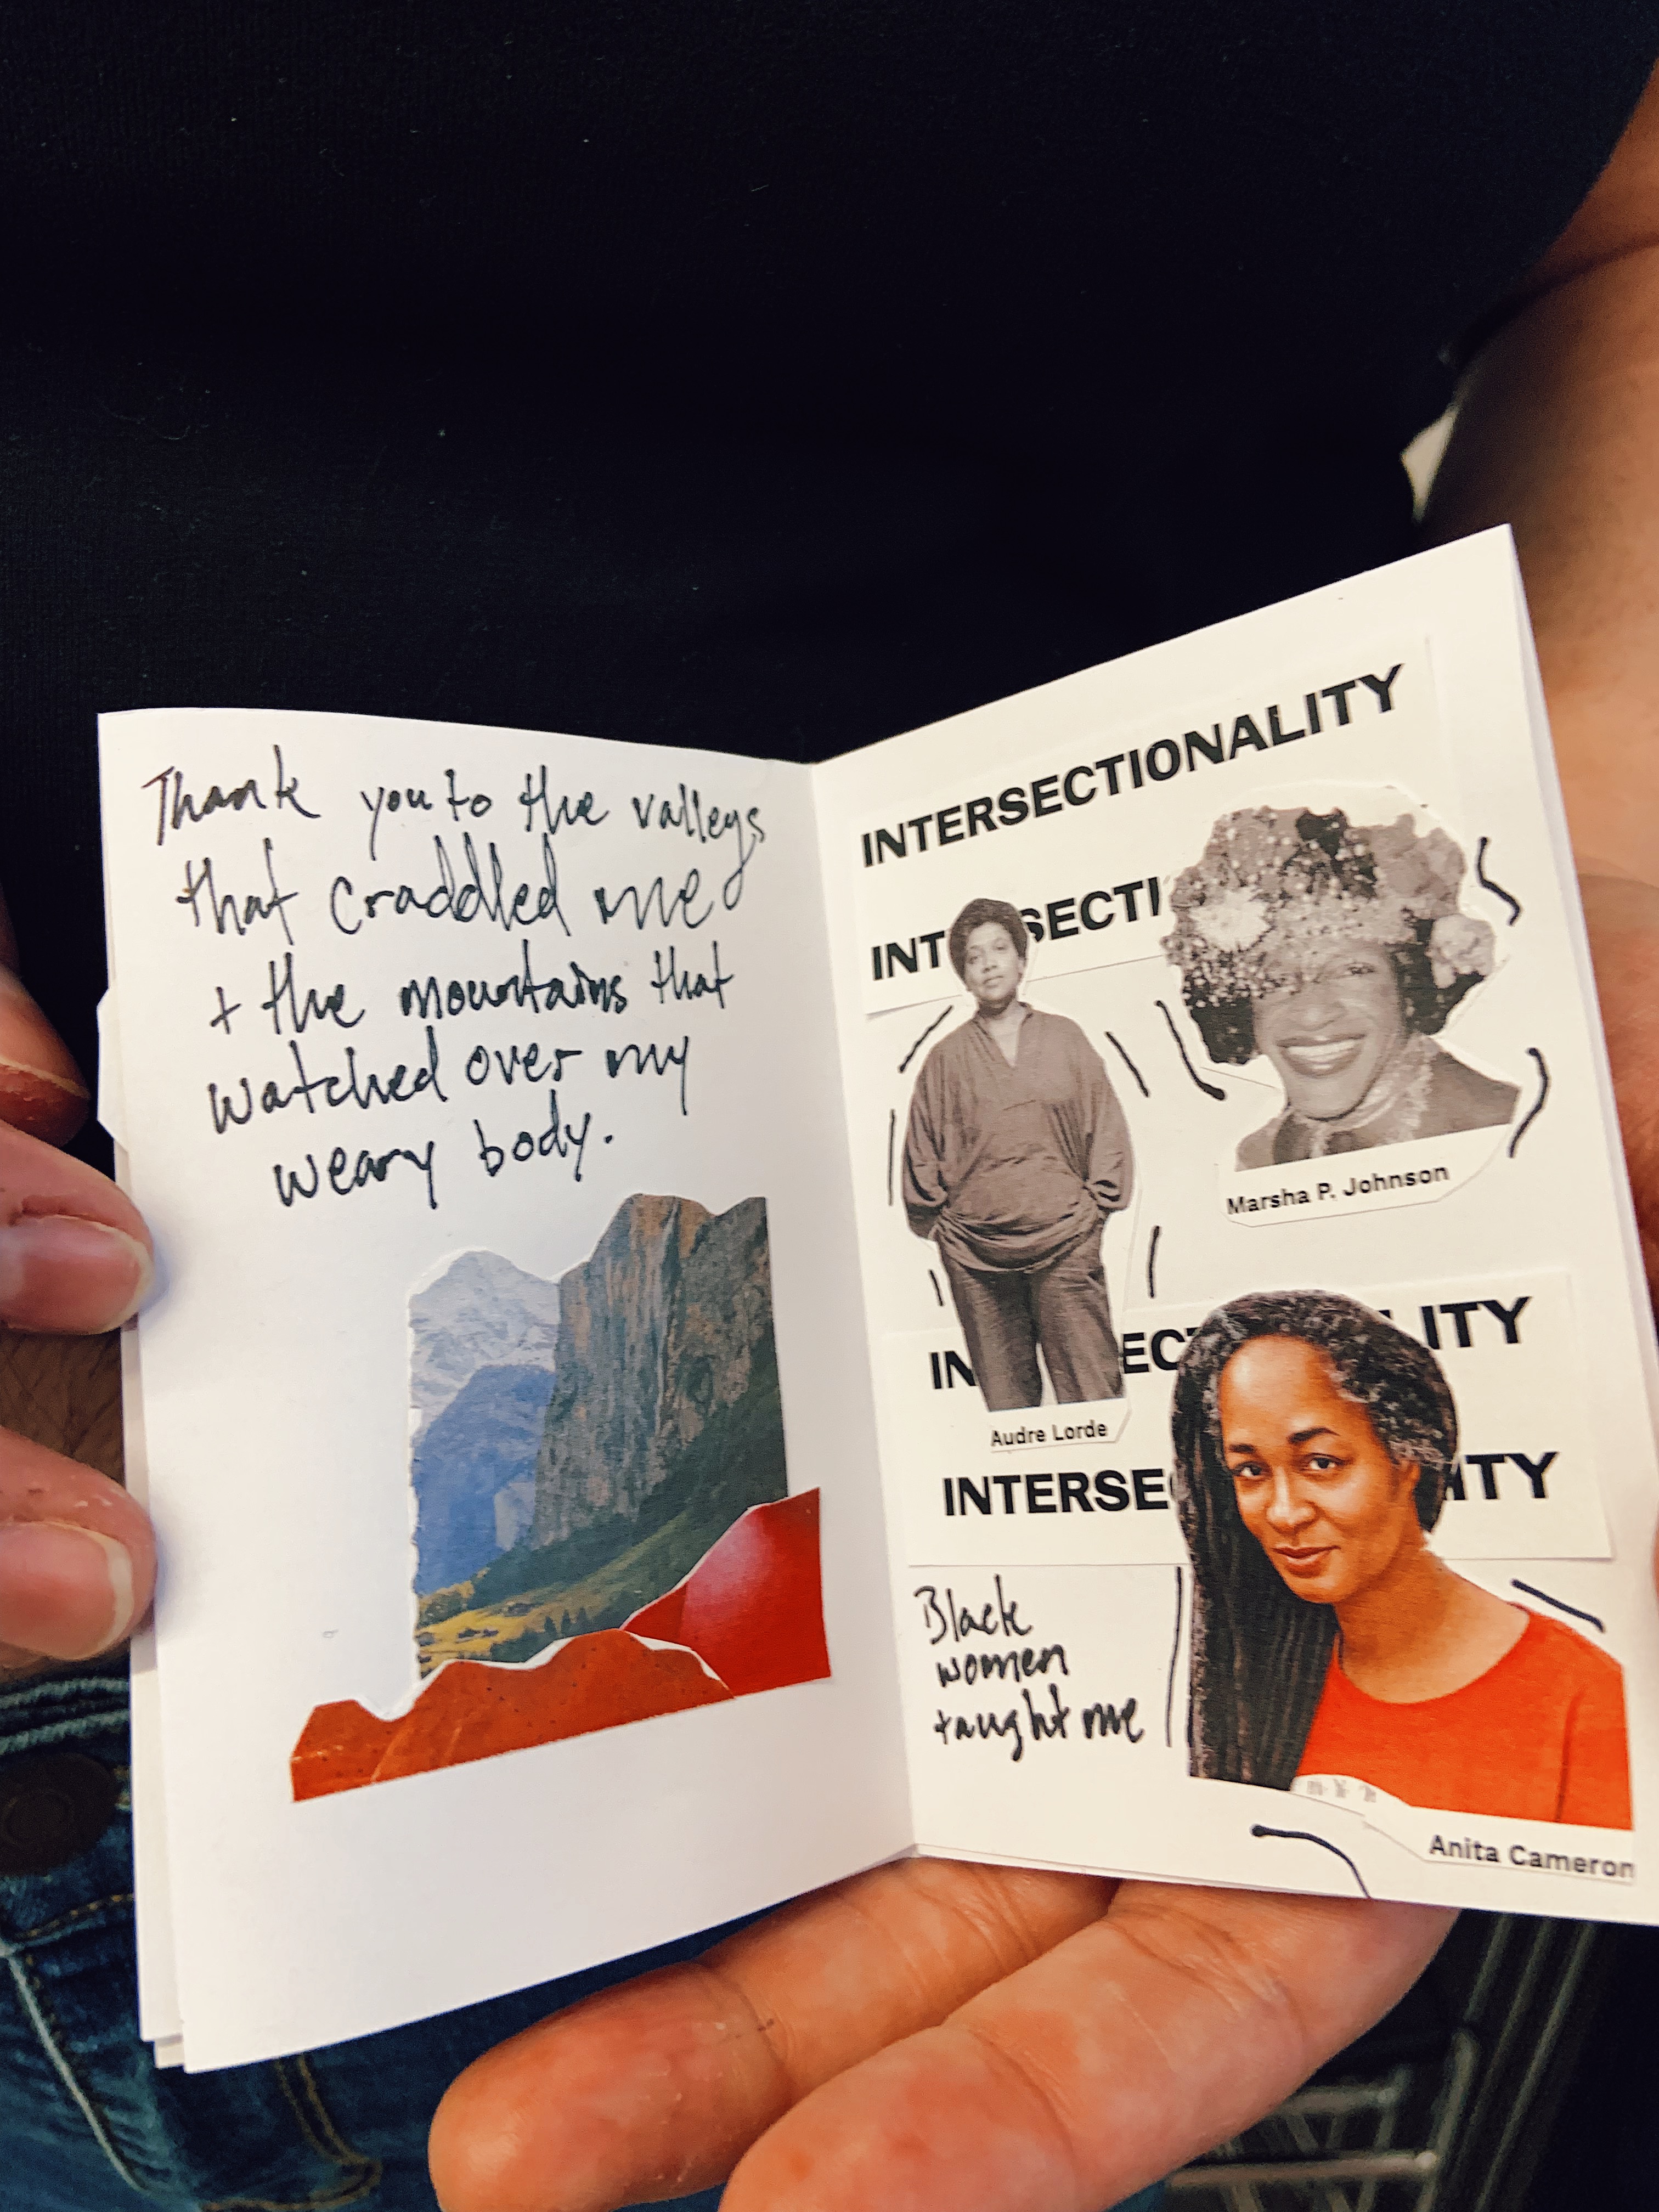 Thank you to the valleys
that craddled me
+ the mountains that
watched over my
weary body.
INTERSECTIONALITY
INT SECTI
Marsha P. Johnson
IN EC ALITY
Audre Lorde
INTERSE ITY
Black
women
taught me
Anita Cameron